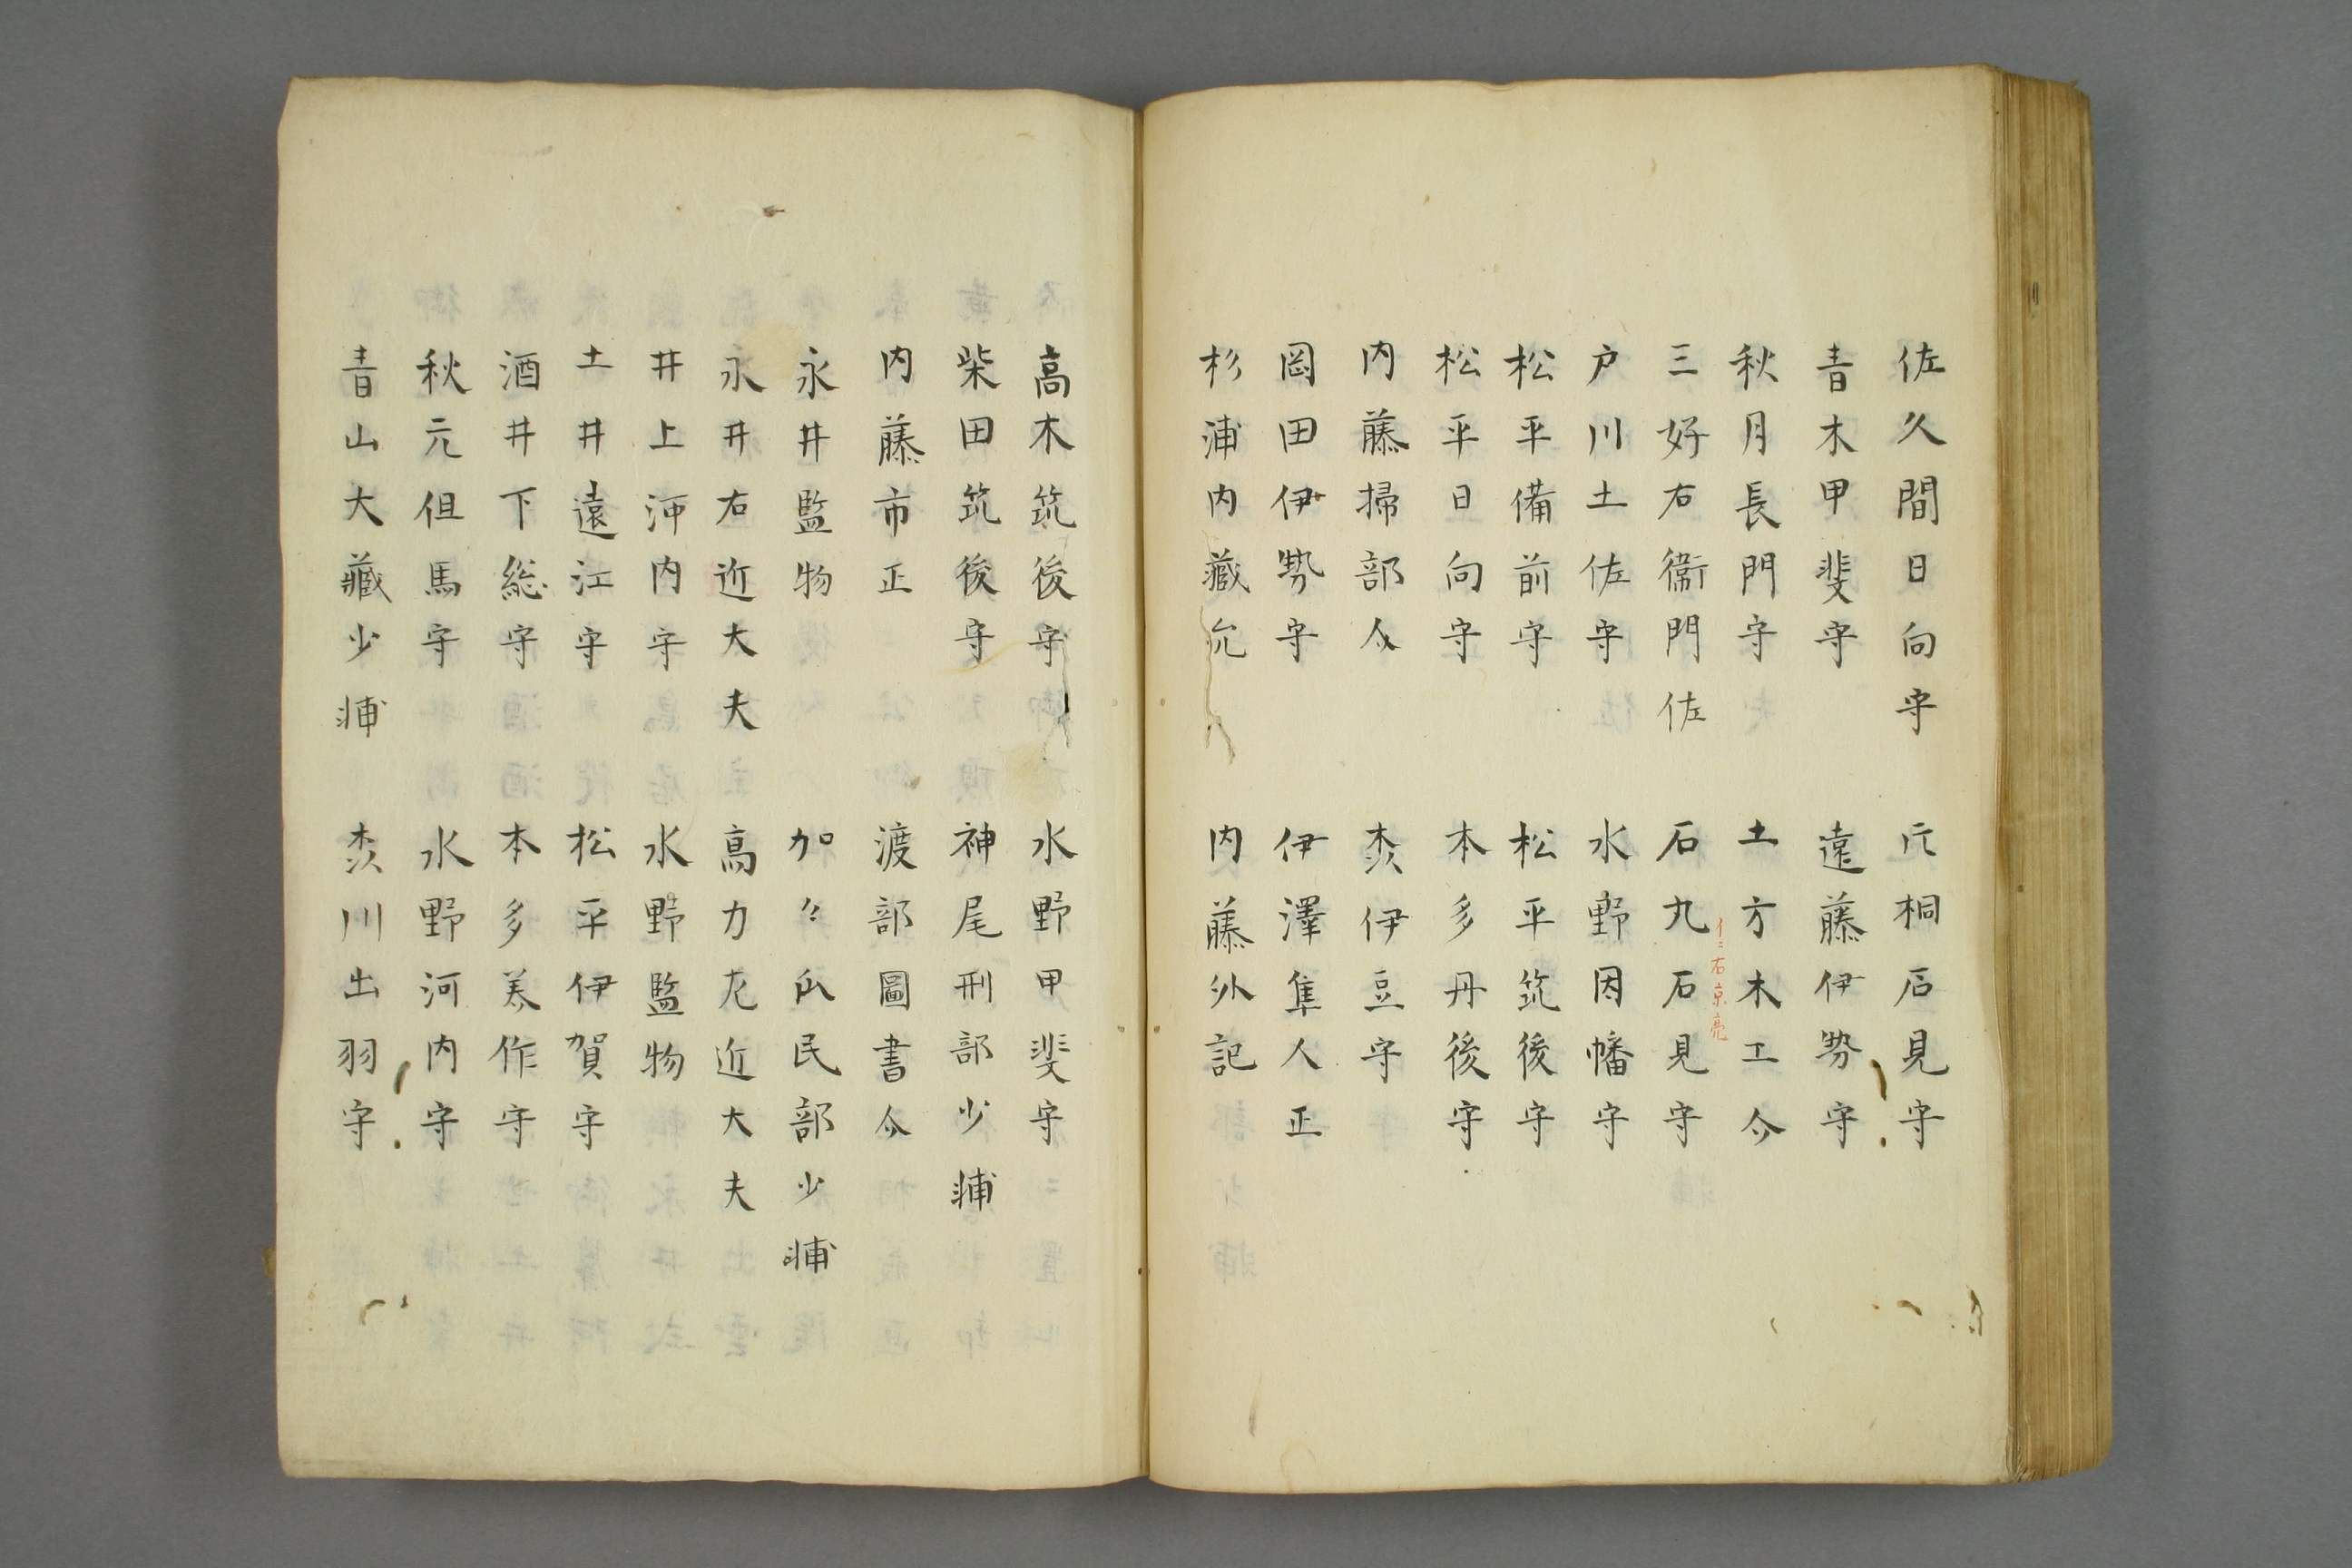 佐久間日向守　片桐石見守
青木甲斐守　遠藤伊勢守
秋月長門守　土方木工令
イニ右京亮
三好右衞門佐　石丸石見守
戸川土佐守　水野因幡守
松平備前守　松平筑後守
松平日向守　本多丹後守
内藤掃部令　桼伊豆守
岡田伊勢守　伊澤隼人正
杉浦内藏允　内藤外記
高木筑後守　水野甲斐守
柴田筑後守　神尾刑部少輔
内藤市正　渡部圖書令
永井監物　加々爪民部少輔
永井右近大夫　高力左近大夫
井上河内守　水野監物
土井遠江守　松平伊賀守
酒井下総守　本多美作守
秋元但馬守　水野河内守
青山大藏少輔　桼川出羽守